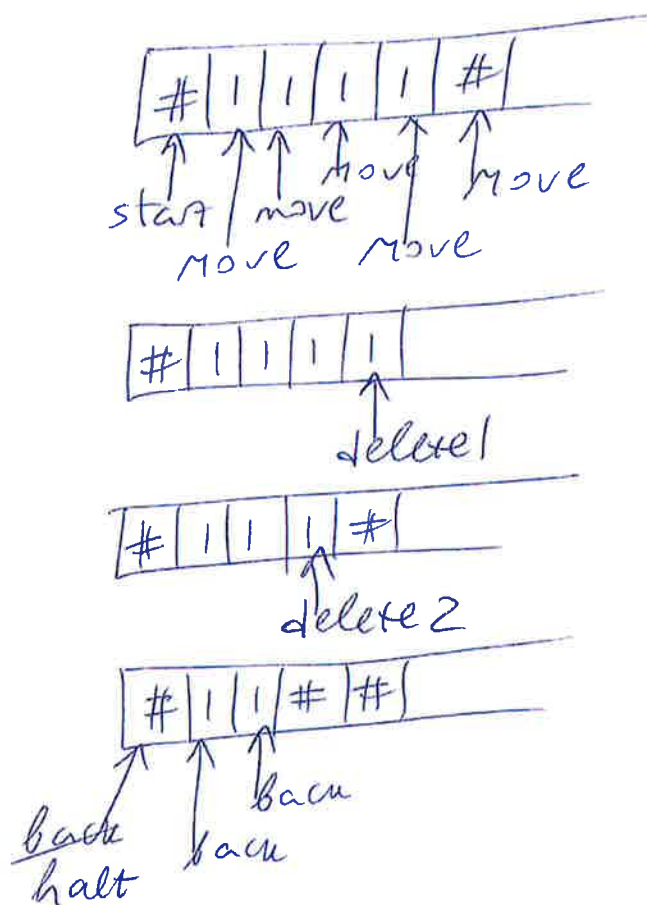 # 1 1 1 1 #
start move move move
move move
# 1 1 1 1
delete1
# 1 1 1 #
delete2
# 1 1 # #
back back back
halt